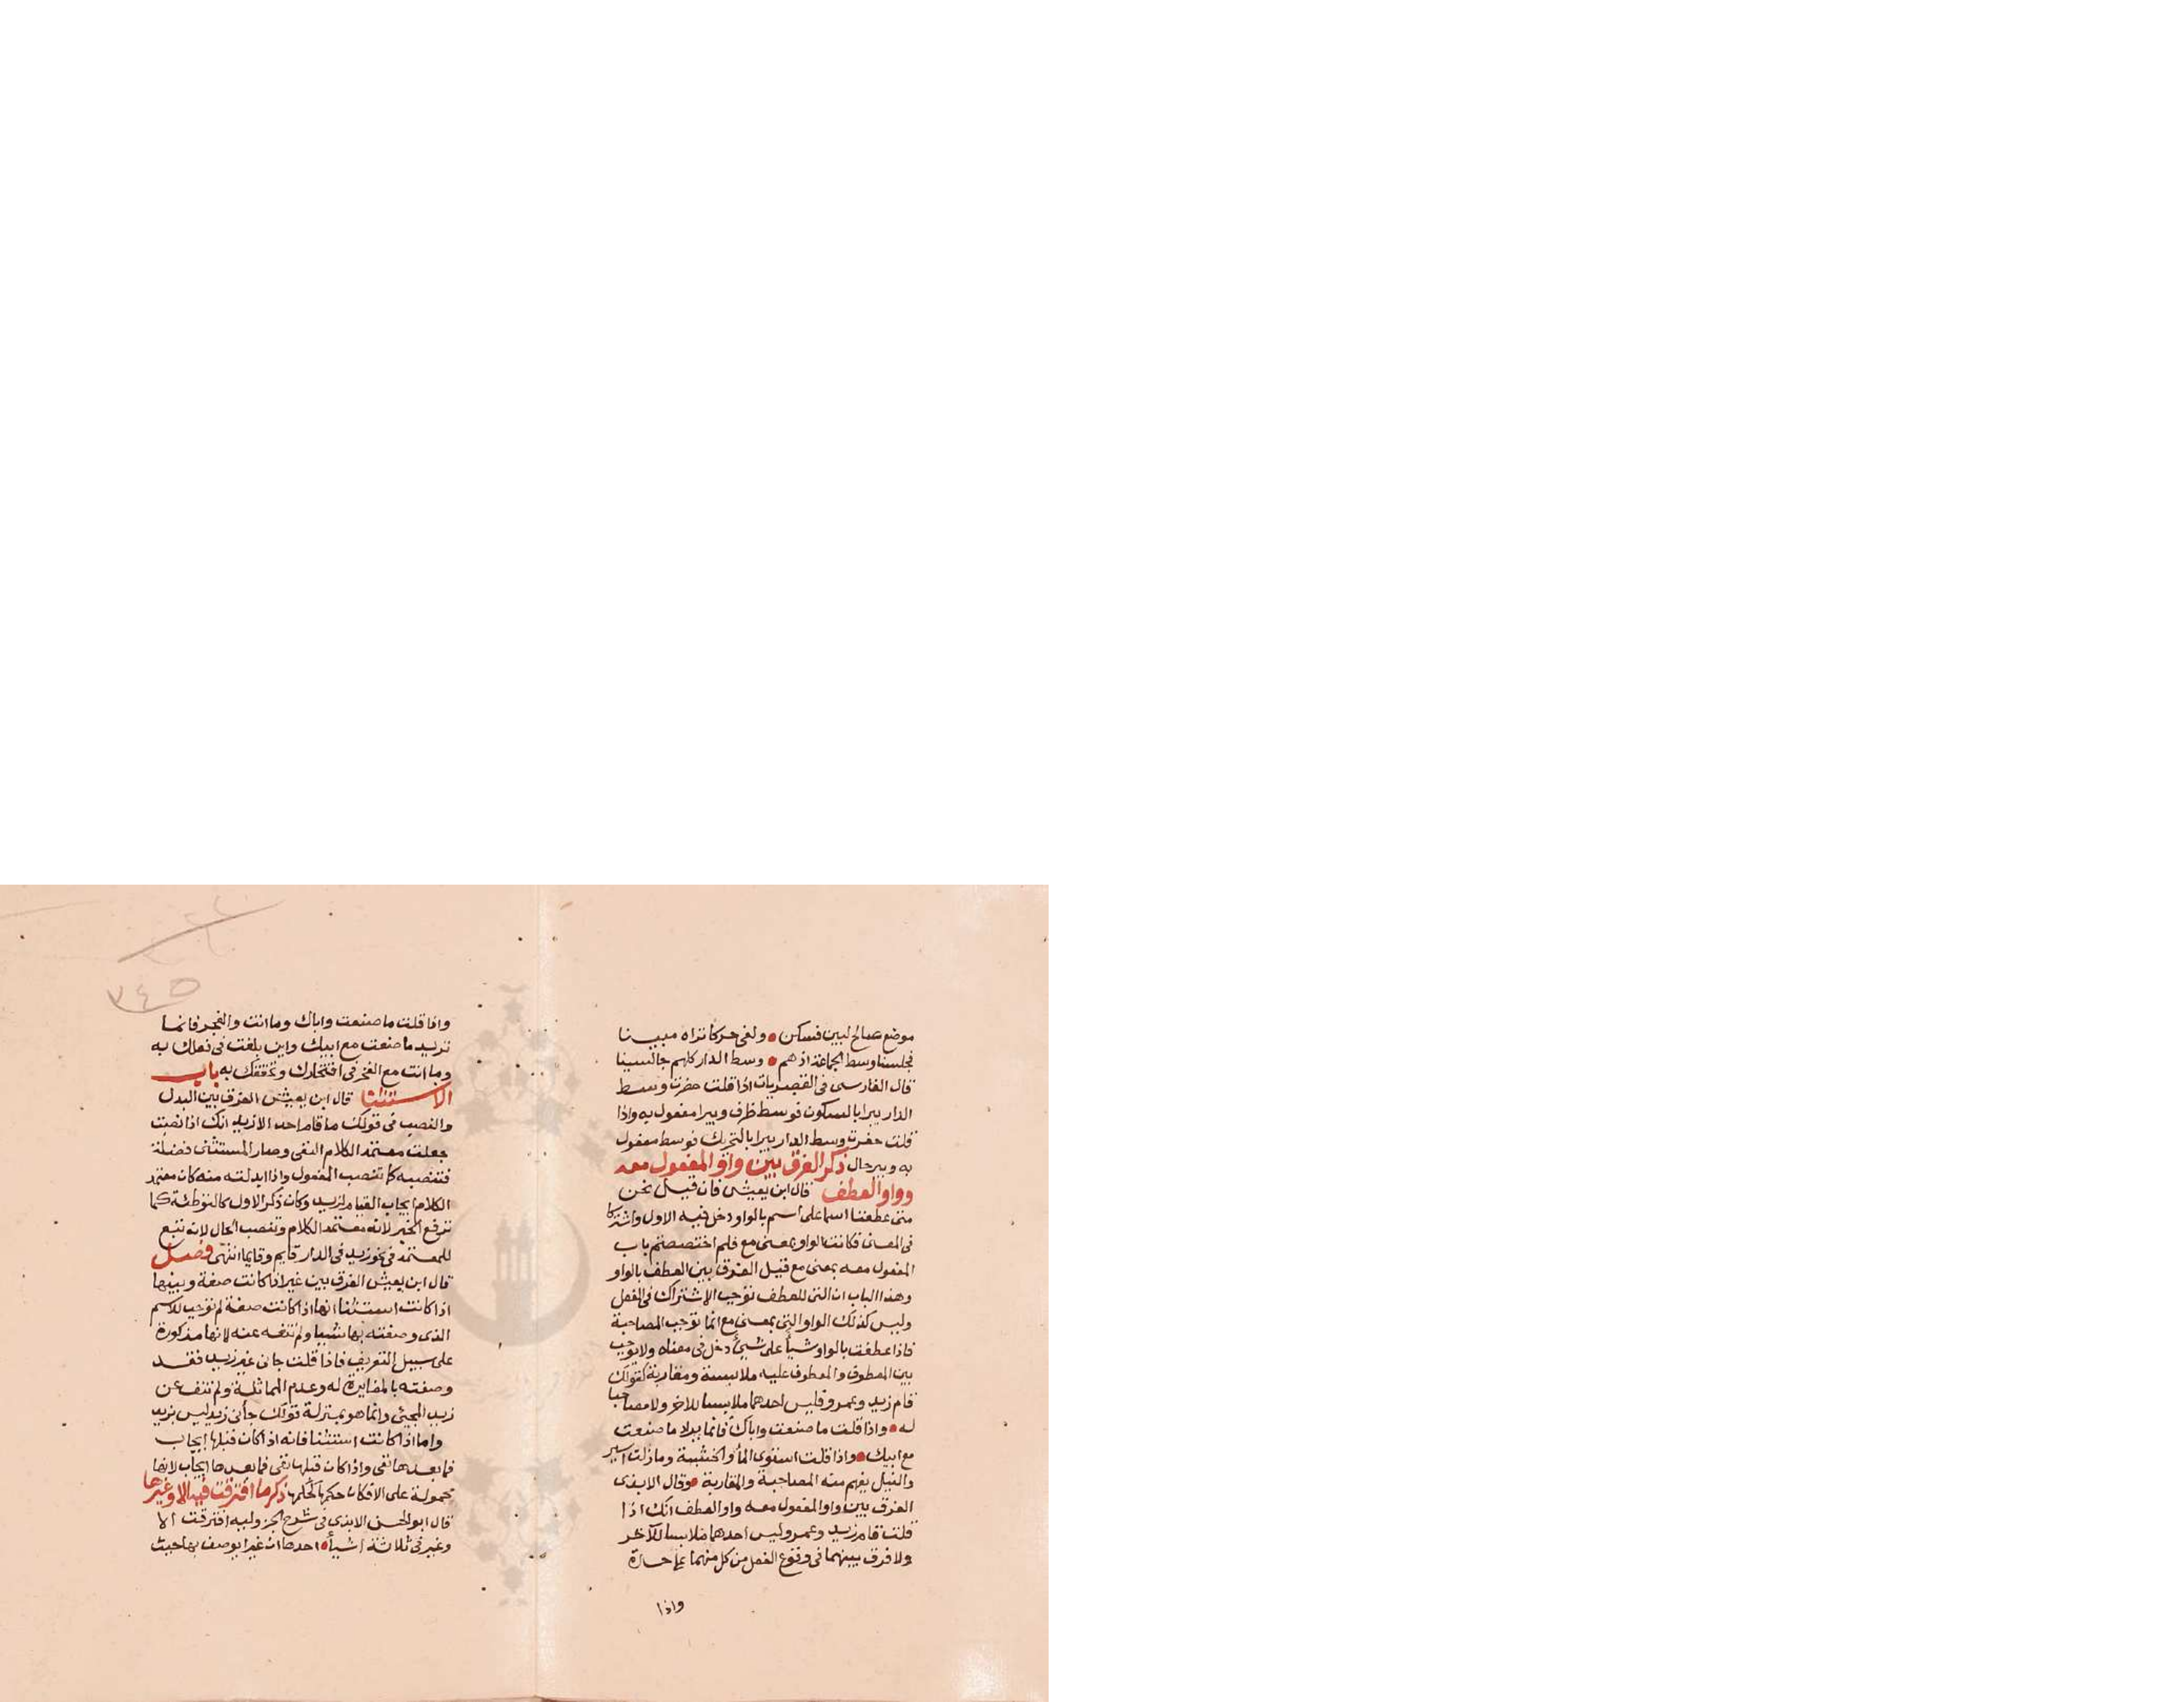 موضع صالح لبين فسكن • ولفى حركا تراه مبينا
فجلسنا وسط الجماعة اذ هم • وسط الدار كلهم جالسينا
قال الفارسى فى القصريات اذا قلت حفرت وسط
الدار بيرا بالسكون فوسط ظرف وبيرا مفعول به واذا
قلت حفرت وسط الدار بيرا بالتحريك فوسط مفعول
به وبير حال ذكر الفرق بين واو المفعول معه
وواو العطف قال ابن يعيش فان قيل نحن
متى عطفنا اسما على اسم بالواو دخل فيه الاول واشتركا
فى المعنى فكانت الواو بمعنى مع فلم اختصصتم باب
المفعول معه بمعنى مع قيل الفرق بين العطف بالواو
وهذا الباب ان التى للعطف توجب الاشتراك فى الفعل
وليس كذلك الواو التى بمعنى مع انما توجب المصاحبة
فاذا عطفت بالواو شيأ على شيئ دخل فى معناه ولا توجب
بين المعطوف والمعطوف عليه ملابسة ومقاربة كقولك
قام زيد وعمرو فليس احدهما ملابسا للاخر ولا مصاحبا
له • واذا قلت ما صنعت واباك فانما يراد ما صنعت
مع ابيك • واذا قلت استوى الما والخشبة وما زلت اسير
والنيل يفهم منه المصاحبة والمقاربة • وقال الابذى
الفرق بين واو المفعول معه واو العطف انك اذا
قلت قام زيد وعمرو ليس احدهما ملابسا للآخر
ولا فرق بينهما فى وقوع الفعل من كل منهما على حدة
واذا
٣٤٥
واذا قلت ما صنعت واباك وما انت والفخر فانما
تريد ما صنعت مع ابيك واين بلغت فى فعلك به
وما انت مع الفخر فى افتخارك وتحققك به باب
الاستثنا قال ابن يعيش الفرق بين البدل
والنصب فى قولك ما قام احد الا زيد انك اذا نصبت
جعلت معتمد الكلام النفى وصار المستثنى فضلة
فتنصبه كما تنصب المفعول واذا ابدلته منه كان معتمد
الكلام ايجاب القيام لزيد وكان ذكر الاول كالتوطئة كما
ترفع الخبر لانه معتمد الكلام وتنصب الحال لانه تبع
للمعتمد فى نحو زيد فى الدار قايم وقايما انتهى فصل
قال ابن يعيش الفرق بين غير اذا كانت صفة وبينها
اذا كانت استثنا انها اذا كانت صفة لم توجب للاسم
الذى وصفته بها شيا ولم تنفه عنه لانها مذكورة
على سبيل التعريف فاذا قلت جانى غير زيد فقد
وصفته بالمغايرة له وعدم المماثلة ولم تنف عن
زيد المجيئ وانما هو بمنزلة قولك جأنى زيد ليس بزيد
واما اذا كانت استثنا فانه اذا كان قبلها ايجاب
فما بعدها نفى واذا كان قبلها نفى فما بعدها ايجاب لانها
محمولة على الا فكان حكمها كحكمها ذكر ما افترقت فيه الا وغيرها
قال ابو الحسن الابذى فى شرح الجزولية افترقت الا
وغير فى ثلاثة اشيأ • احدها ان غيرا يوصف بها حيث